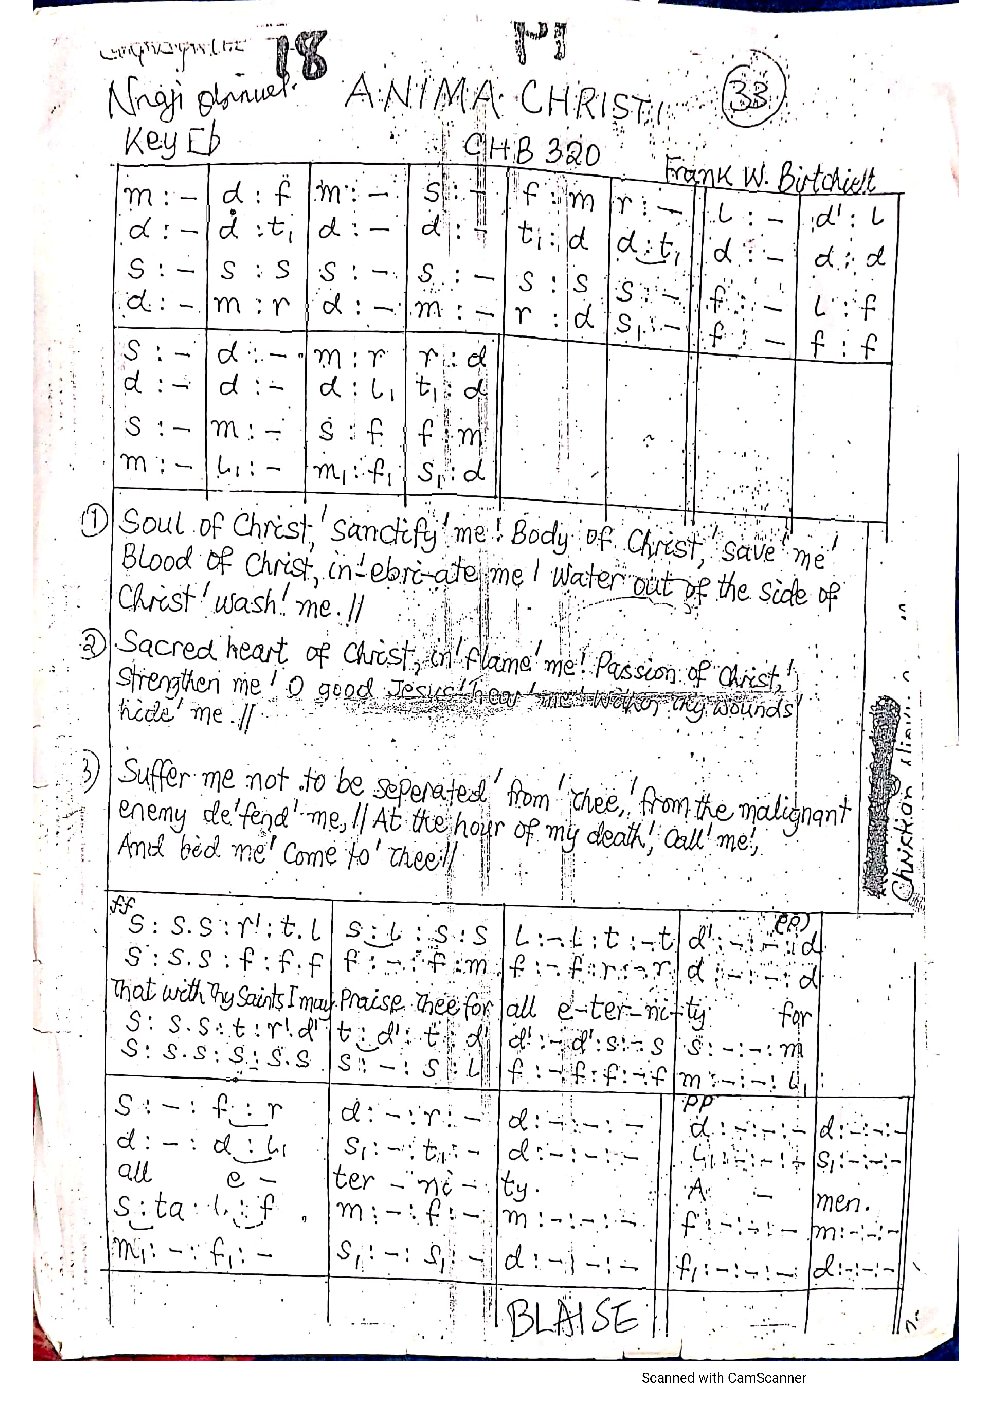 18
Nnaji
ANIMA CHRISTI
33
Key Eb
CHB 320
Frank W. Birtchielt
m : – | d : f | m : – | s : – | f : m | r : – | l : – | d' : l
d : – | d : t₁ | d : – | d : – | t₁ : d | d : t₁ | d : – | d : d
s : – | s : s | s : – | s : – | s : s | s : – | f : – | l : f
d : – | m : r | d : – | m : – | r : d | s₁ : – | f : – | f : f
s : – | d : – | m : r | r : d
d : – | d : – | d : l₁ | t₁ : d
s : – | m : – | s : f | f : m
m : – | l₁ : – | m₁ : f₁ | s₁ : d
① Soul of Christ,' Sanctify' me! Body of Christ,' save' me'
Blood of Christ, in'-ebri-ate me! Water out of the side of
Christ' wash' me.//
② Sacred heart of Christ, in'flame' me! Passion of Christ,'
Strengthen me' O good Jesus' hear' me' Within thy wounds'
hide' me.//
3) Suffer me not to be seperated' from' Thee,' from the malignant
enemy de'fend' me,// At the hour of my death', Call' me',
And bid me' Come to' Thee'//
Christian
ff
(pp)
s : s.s : r' : t.l | s : l : s : s | l : – l : t : – t | d' : – : – : d
s : s.s : f : f.f | f : – : f : m | f : – f : r : – r | d : – : – : d
That with Thy Saints I may | Praise Thee for | all e-ter-ni-ty for
s : s.s : t : r'.d' | t : d' : t : d' | d' : – d' : s : – s | s : – : – : m
s : s.s : s : s.s | s : – : s : l | f : – f : f : – f | m : – : – : l₁
pp
s : – : f : r | d : – : r : – | d : – : – : – | d : – : – : – | d : – : – : –
d : – : d : l₁ | s₁ : – : t₁ : – | d : – : – : – | l₁ : – : – : – | s₁ : – : – : –
all e – | ter – ni – | ty. | A – | men.
s : ta : l : f | m : – : f : – | m : – : – : – | f : – : – : – | m : – : – : –
m₁ : – : f₁ : – | s₁ : – : s₁ : – | d : – : – : – | f₁ : – : – : – | d : – : – : –
BLAISE
Scanned with CamScanner